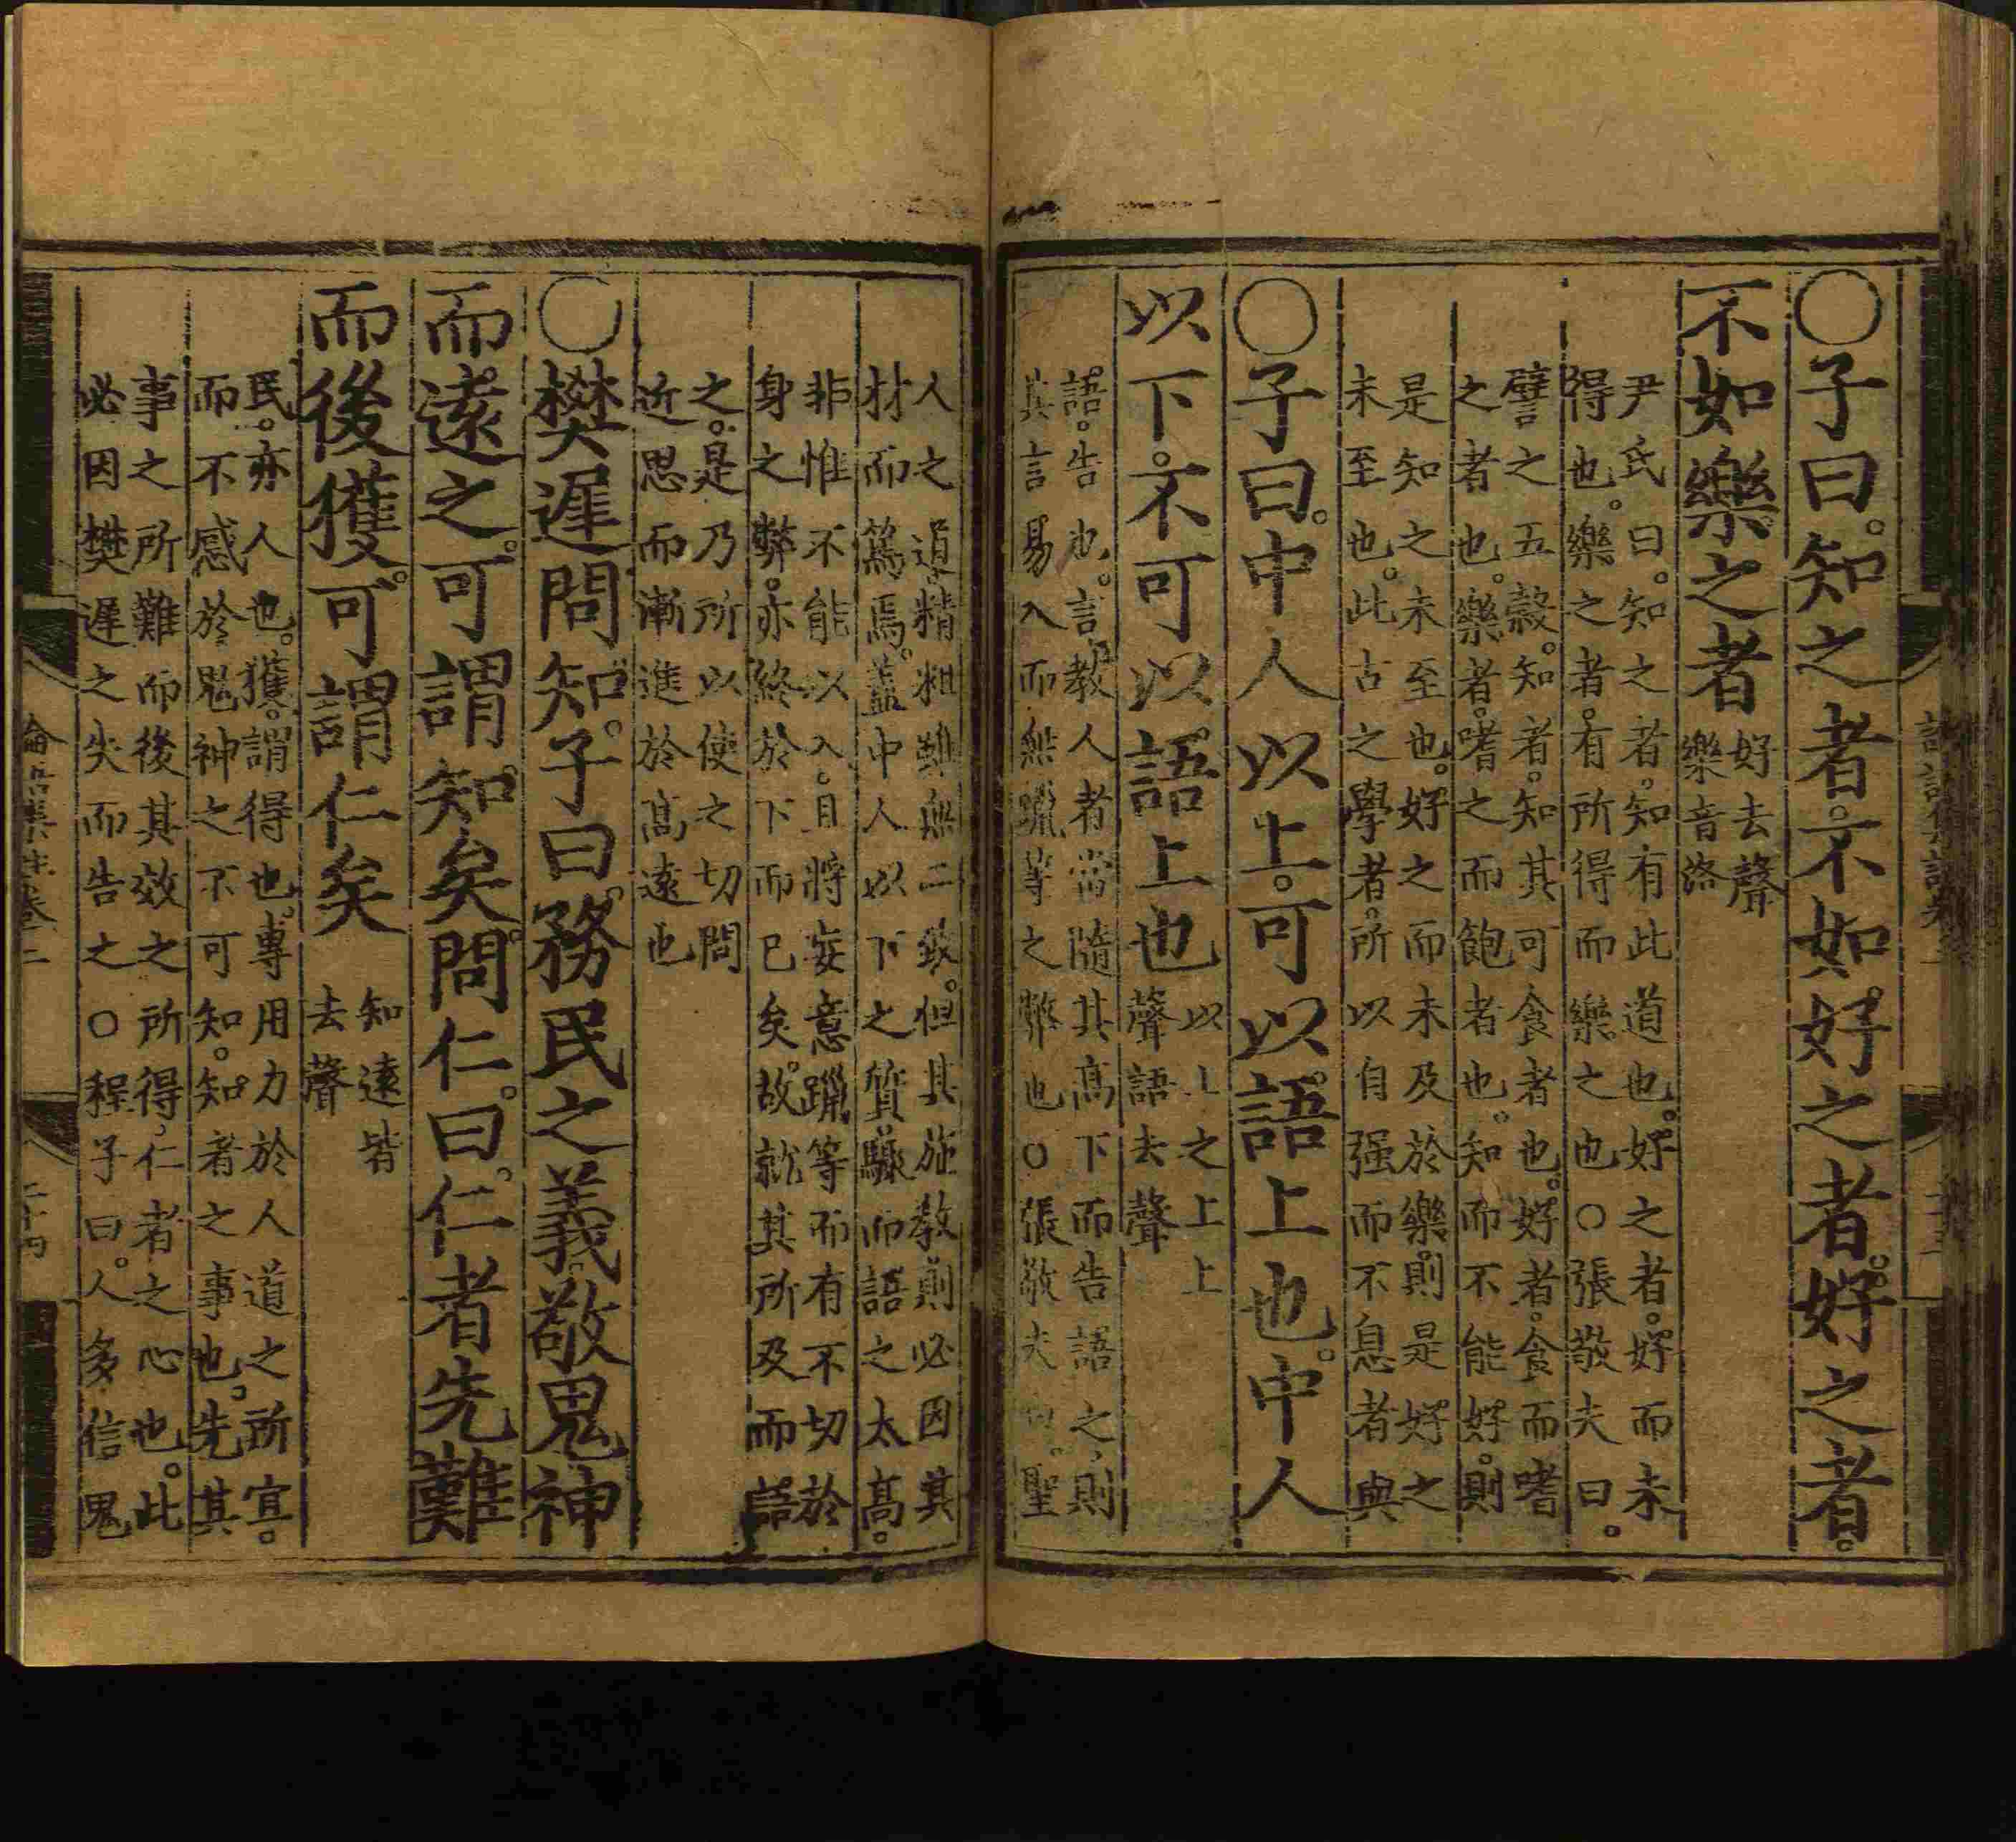 ○子曰。知之者。不如好之者。好之者。
不如樂之者
好去聲
樂音洛
尹氏曰。知之者。知有此道也。好之者。好而未
得也。樂之者。有所得而樂之也○張敬夫曰。
譬之五穀。知者。知其可食者也。好者。食而嗜
之者也。樂者。嗜之而飽者也。知而不能好。則
是知之未至也。好之而未及於樂。則是好之
未至也。此古之學者。所以自强而不息者與
○子曰。中人以上。可以語上也。中人
以下。不可以語上也
以上之上上
聲語去聲
語。告也。言教人者當隨其高下而告語之、則
其言易入而無躐等之弊也○張敬夫曰。聖
人之道。精粗雖無二致。但其施敎則必因其
材而篤焉。蓋中人以下之質驟而語之太高。
非惟不能以入。且將妄意躐等而有不切於
身之弊。亦終於下而已矣。故就其所及而語
之。是乃所以使之切問
近思而漸進於高遠也
○樊遲問知。子曰。務民之義。敬鬼神
而遠之。可謂知矣。問仁。曰。仁者先難
而後獲。可謂仁矣
知遠皆
去聲
民。亦人也。獲。謂得也。專用力於人道之所宜。
而不惑於鬼神之不可知。知者之事也。先其
事之所難而後其效之所得、仁者之心也。此
必因樊遲之失而告之○程子曰。人多信鬼
論語集註卷三
二十四